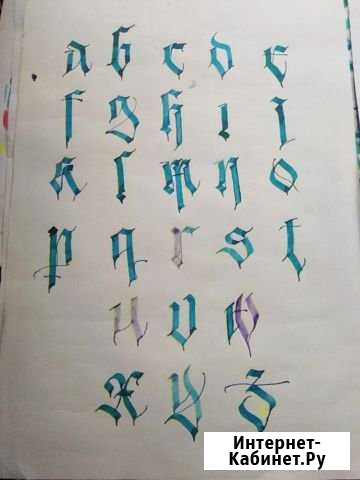 a b c d e
f g h i j
k l m n o
p q r s t
u v w
x y z
Интернет-
Кабинет.Ру